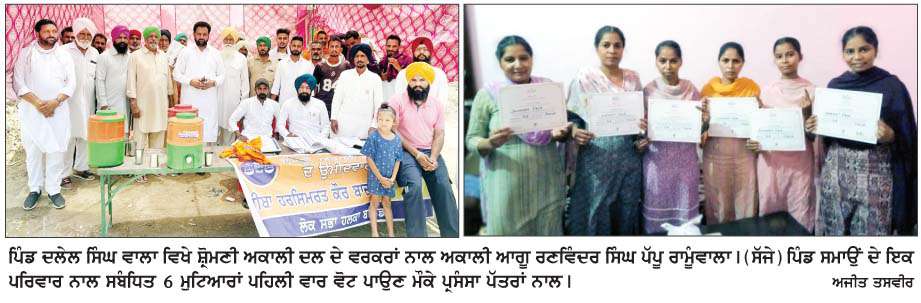 ਦੇ ਉਮੀਦਵਾਰ
ਬੀਬਾ ਹਰਸਿਮਰਤ ਕੌਰ ਬਾਦਲ
ਲੋਕ ਸਭਾ ਹਲਕਾ
ਪਿੰਡ ਦਲੇਲ ਸਿੰਘ ਵਾਲਾ ਵਿਖੇ ਸ਼੍ਰੋਮਣੀ ਅਕਾਲੀ ਦਲ ਦੇ ਵਰਕਰਾਂ ਨਾਲ ਅਕਾਲੀ ਆਗੂ ਰਣਵਿੰਦਰ ਸਿੰਘ ਪੱਪੂ ਰਾਮੂੰਵਾਲਾ।(ਸੱਜੇ) ਪਿੰਡ ਸਮਾਉਂ ਦੇ ਇਕ
ਪਰਿਵਾਰ ਨਾਲ ਸਬੰਧਿਤ 6 ਮੁਟਿਆਰਾਂ ਪਹਿਲੀ ਵਾਰ ਵੋਟ ਪਾਉਣ ਮੌਕੇ ਪ੍ਰਸੰਸਾ ਪੱਤਰਾਂ ਨਾਲ। ਅਜੀਤ ਤਸਵੀਰ